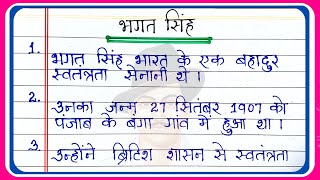 भगत सिंह
1. भगत सिंह भारत के एक बहादुर
स्वतंत्रता सेनानी थे ।
2. उनका जन्म 27 सितंबर 1907 को
पंजाब के बंगा गांव में हुआ था ।
3. उन्होंने ब्रिटिश शासन से स्वतंत्रता